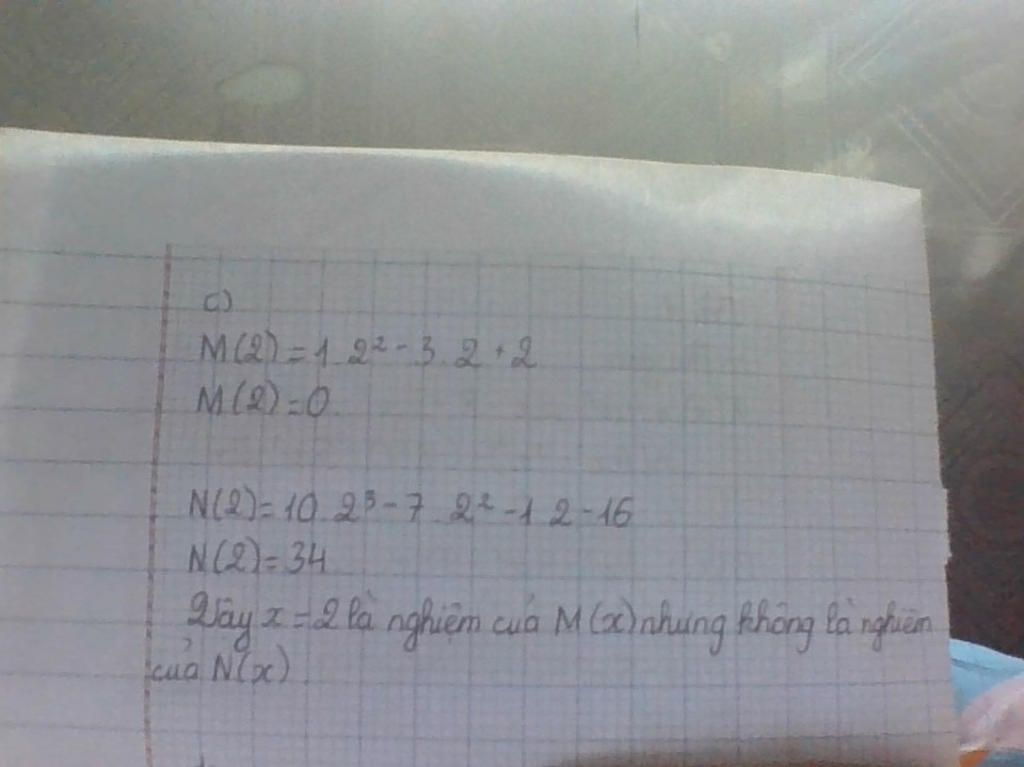 c)
M(2) = 1. 2² - 3. 2 + 2
M(2) = 0
N(2) = 10. 2³ - 7. 2² - 1. 2 - 16
N(2) = 34
Vậy x = 2 là nghiệm của M(x) nhưng không là nghiệm
của N(x).